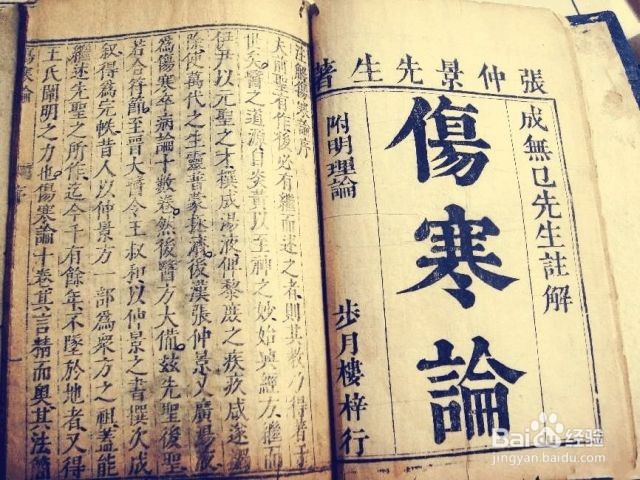 張仲景先生著
成無已先生註解
傷寒論
附明理論
步月樓梓行
註解傷寒論序
夫前聖有作後必有繼而述之者則其教乃得著于
世矣醫之道源自炎黃以至神之妙始興經方繼而
伊尹以元聖之才撰成湯液俾黎庶之疾疢咸遂蠲
除使萬代之生靈普蒙拯濟後漢張仲景又廣湯液
爲傷寒卒病論十數卷然後醫方大備茲先聖後聖
若合符節至晉太醫令王叔和以仲景之書撰次成
叙得爲完帙昔人以仲景方一部爲衆方之祖蓋能
繼述先聖之所作迄今千有餘年不墜於地者又得
王氏闡明之力也傷寒論十卷其言精而奧其法簡
傷寒論 序
Baidu经验
jingyan.baidu.com